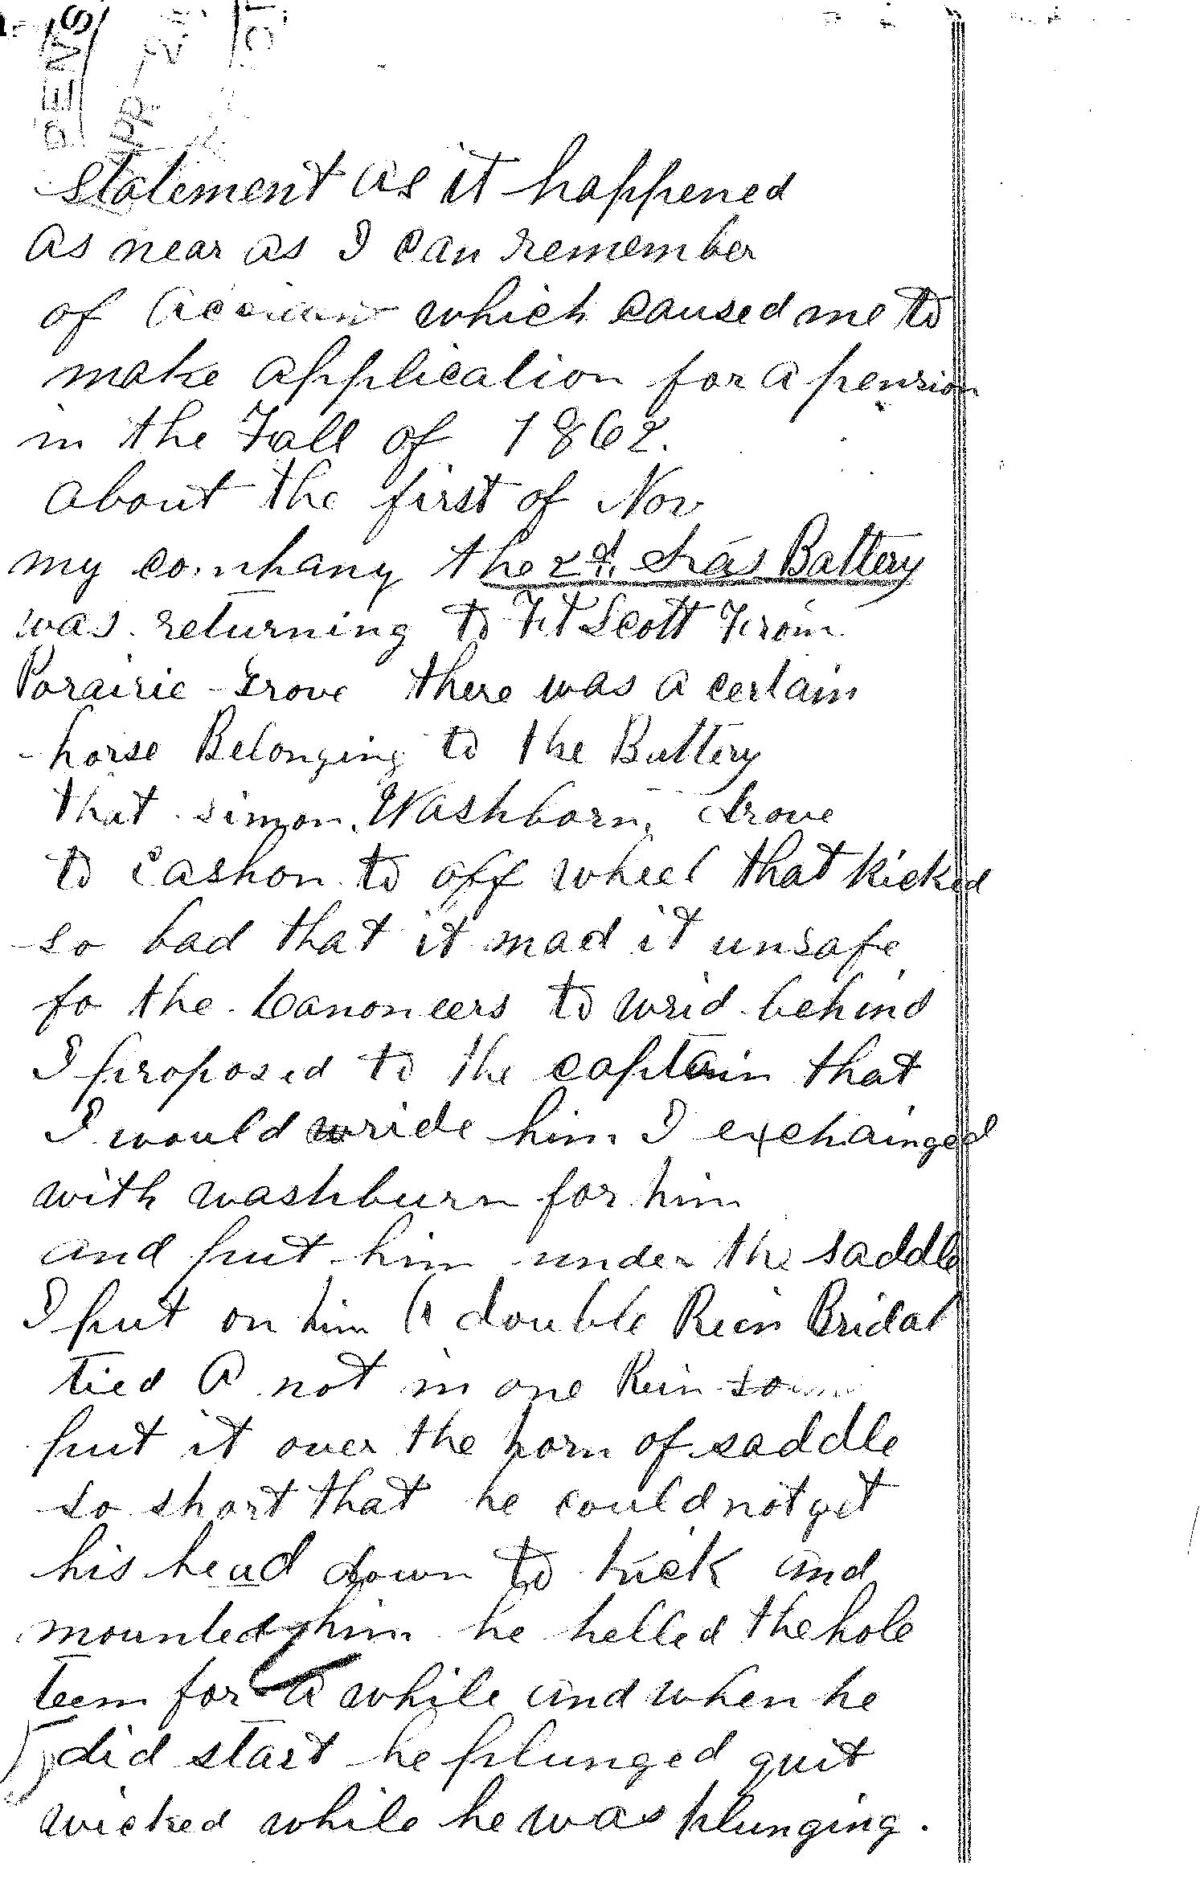 PENS
APR 2
statement as it happened
as near as I can remember
of which caused me to
make application for a pension
in the Fall of 1862.
about the first of Nov
my company the 2d. Kas Battery
was returning to Ft Scott From
Porairie Grove there was a certain
horse Belonging to the Battery
that simon Washborn, drove
to cashon to off wheel that kicked
so bad that it mad it unsafe
fo the canoneers to wrid behind
I proposed to the captain that
I would wride him I exchainged
with washburn for him
and put him under the saddle
I put on him a double Rein Bridal
tied a not in one Rein
put it over the horn of saddle
so short that he could not get
his head down to kick and
mounted him he helled the hole
teem for a while and when he
did start he plunged quit
wicked while he was plunging.